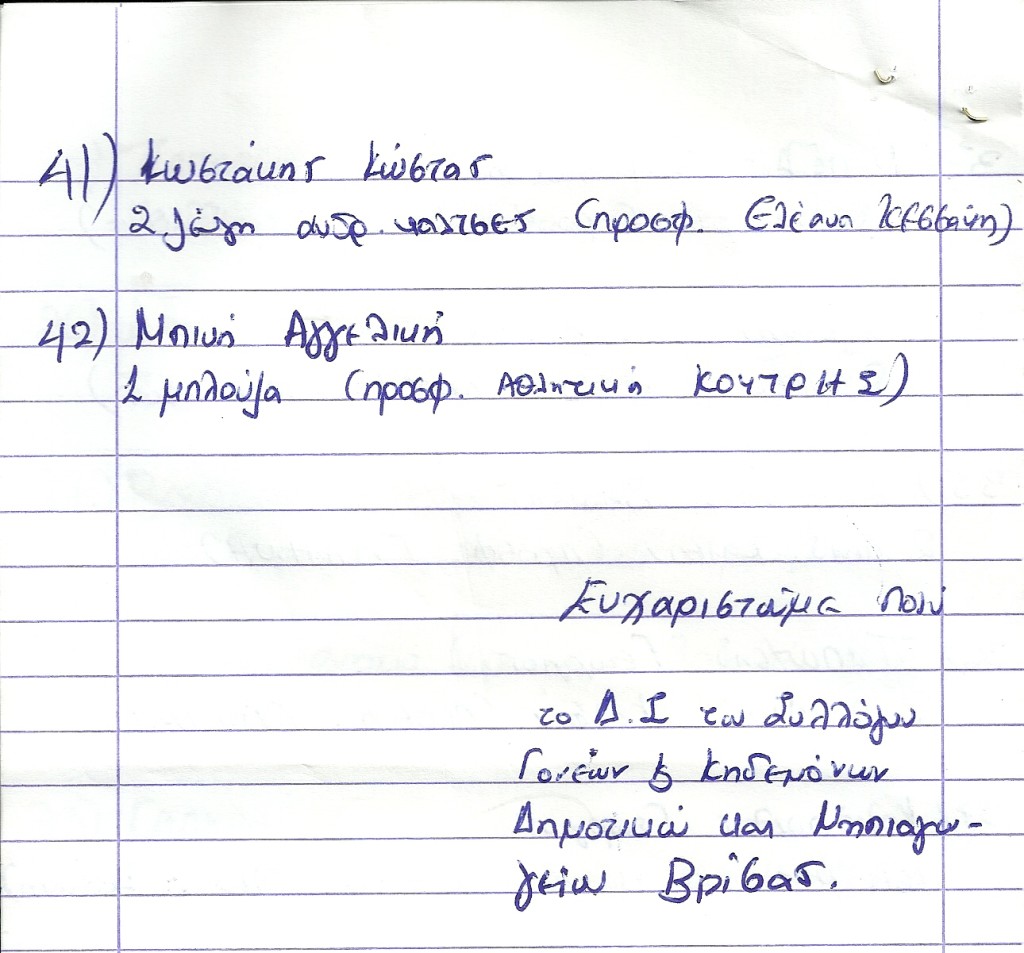 41) Κωστάκης Κώστας
2 ζεύγη ανδρ. κάλτσες (προσφ. Ελέανα
42) Μπική Αγγελική
1 μπλούζα (προσφ. Αθλητικά ΚΟΥΤΡΗΣ)
Ευχαριστούμε πολύ
το Δ.Σ του Συλλόγου
Γονέων & Κηδεμόνων
Δημοτικού και Νηπιαγω-
γείου Βρίβας.